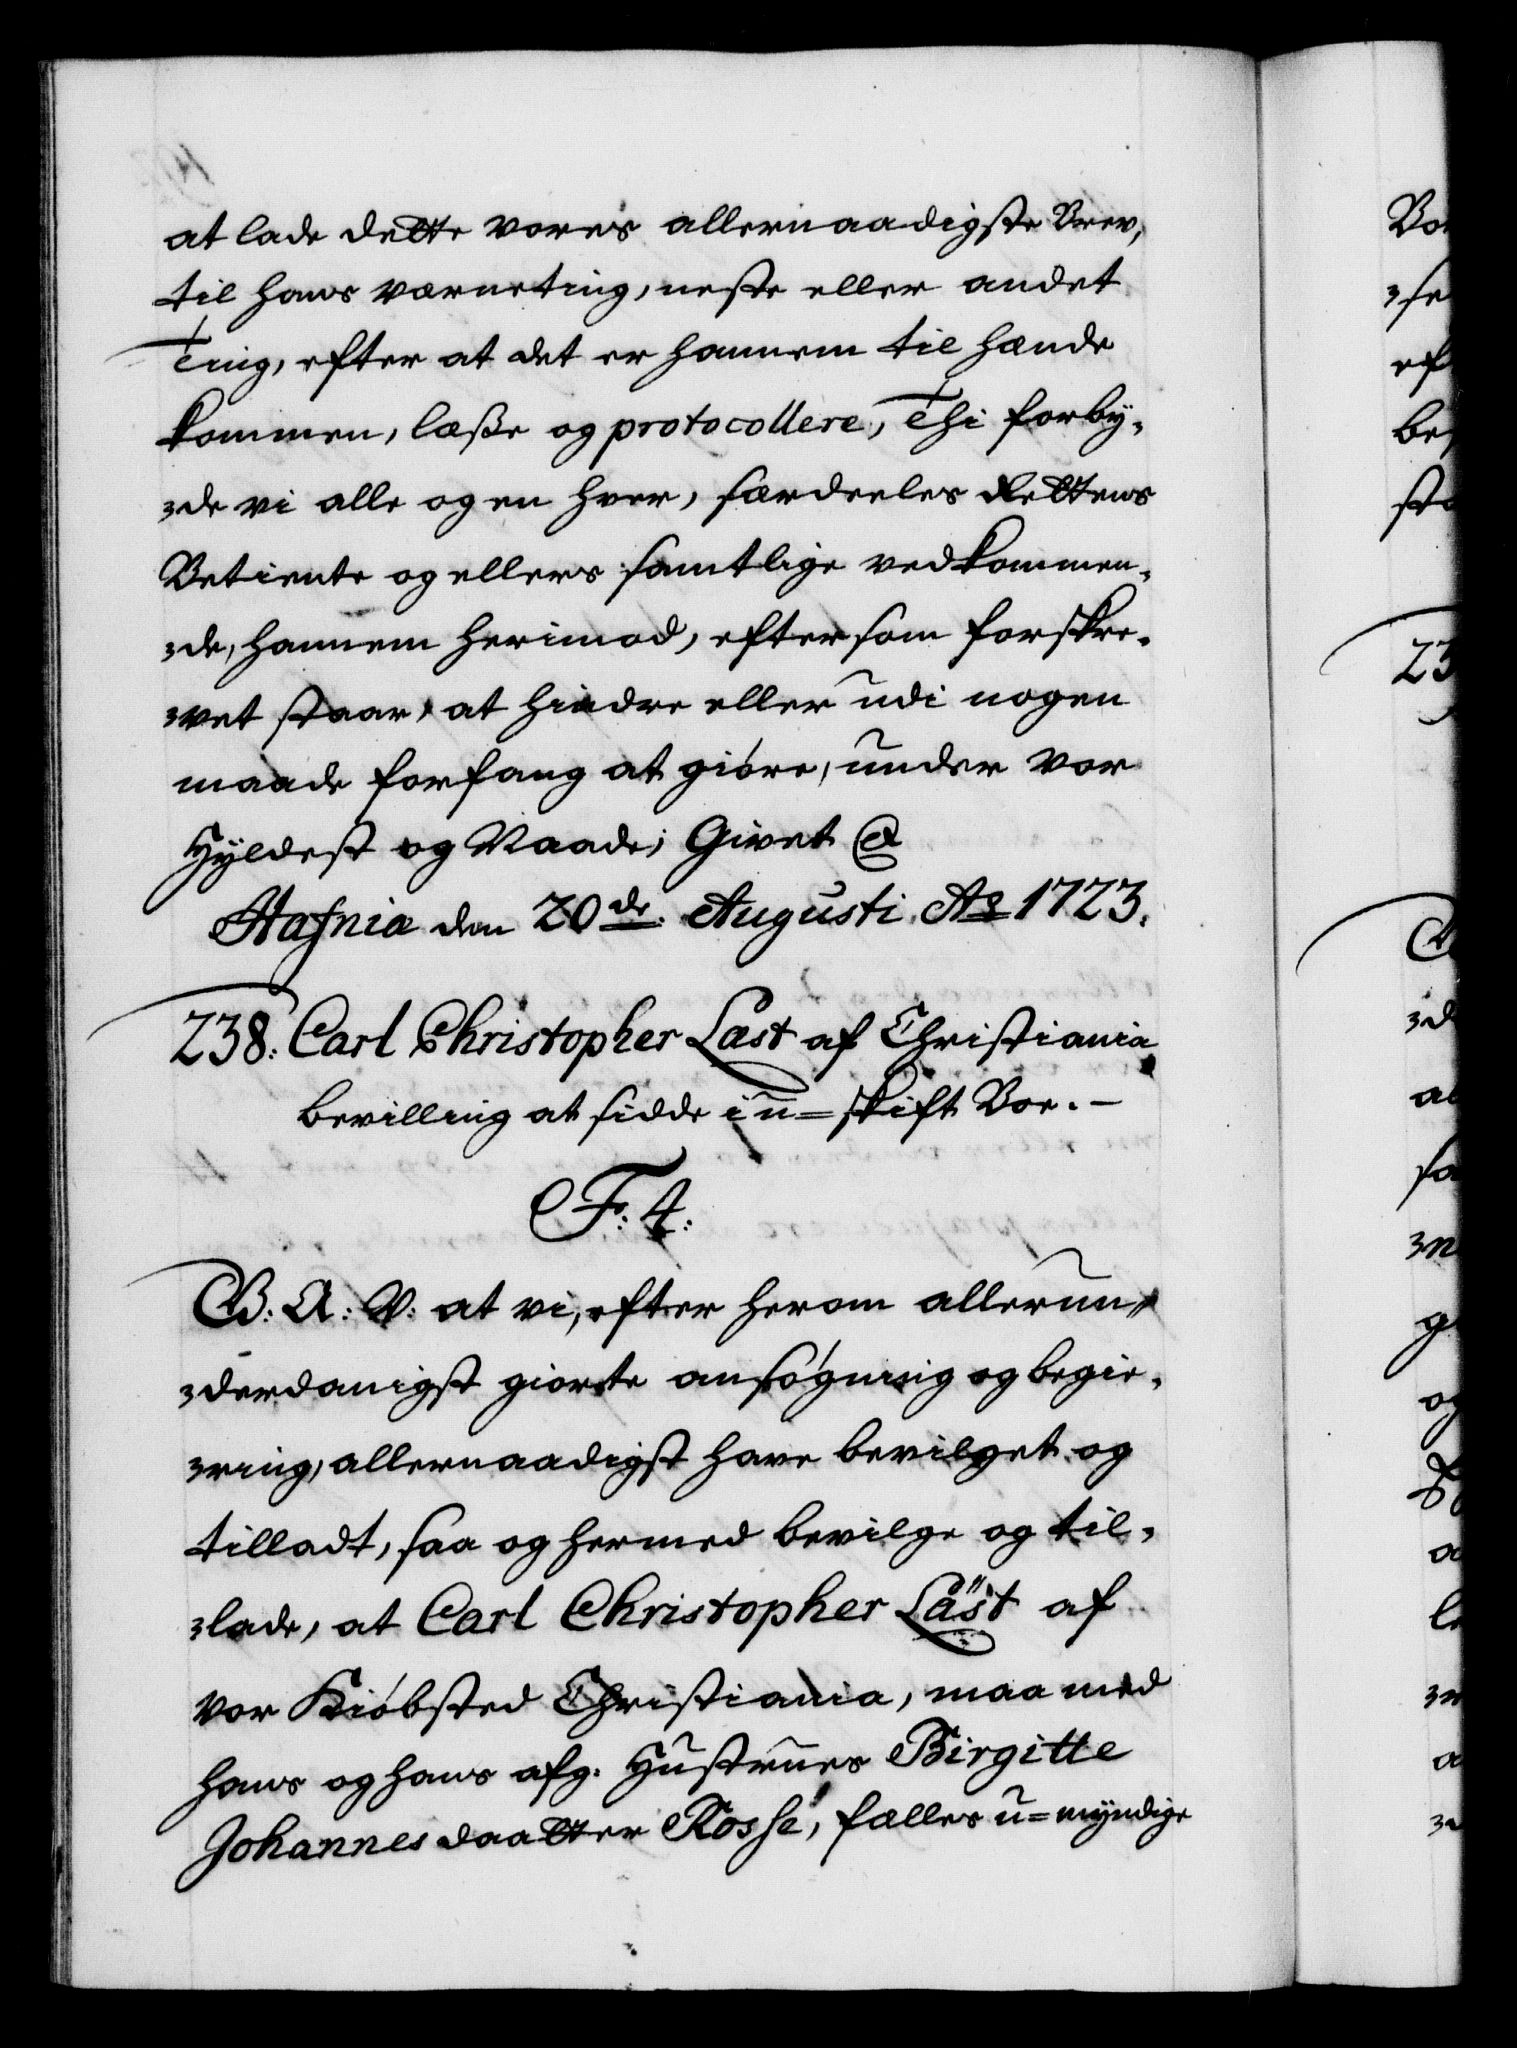 at lade dette vores allernaadigste Brev,
til hans værneting, neste eller andet
Ting, efter at det er hannem til hænde
kommen, læse og protocollere, Thi forby-
de vi alle og en hver, særdeeles Rettens
Betiente og ellers samtlige vedkommen-
de, hannem herimod, eftersom forskre-
vet staar, at hindre eller udi nogen
maade forfang at giøre, under vor
Hyldest og Naade; Givet
Hafniæ den 20de. Augusti Ao 1723.
238. Carl Christopher Læst af Christiania
bevilling at sidde i u=skift Boe. —
F: 4:
G: A: V: at vi, efter herom allerun-
derdanigst giorte ansøgning og begie-
ring, allernaadigst have bevilget og
tilladt, saa og hermed bevilge og til-
lade, at Carl Christopher Läst af
vor Kiøbsted Christiania, maa med
hans og hans afg. Hustrues Birgitte
Johannesdaatter Rosse, fælles u=myndige